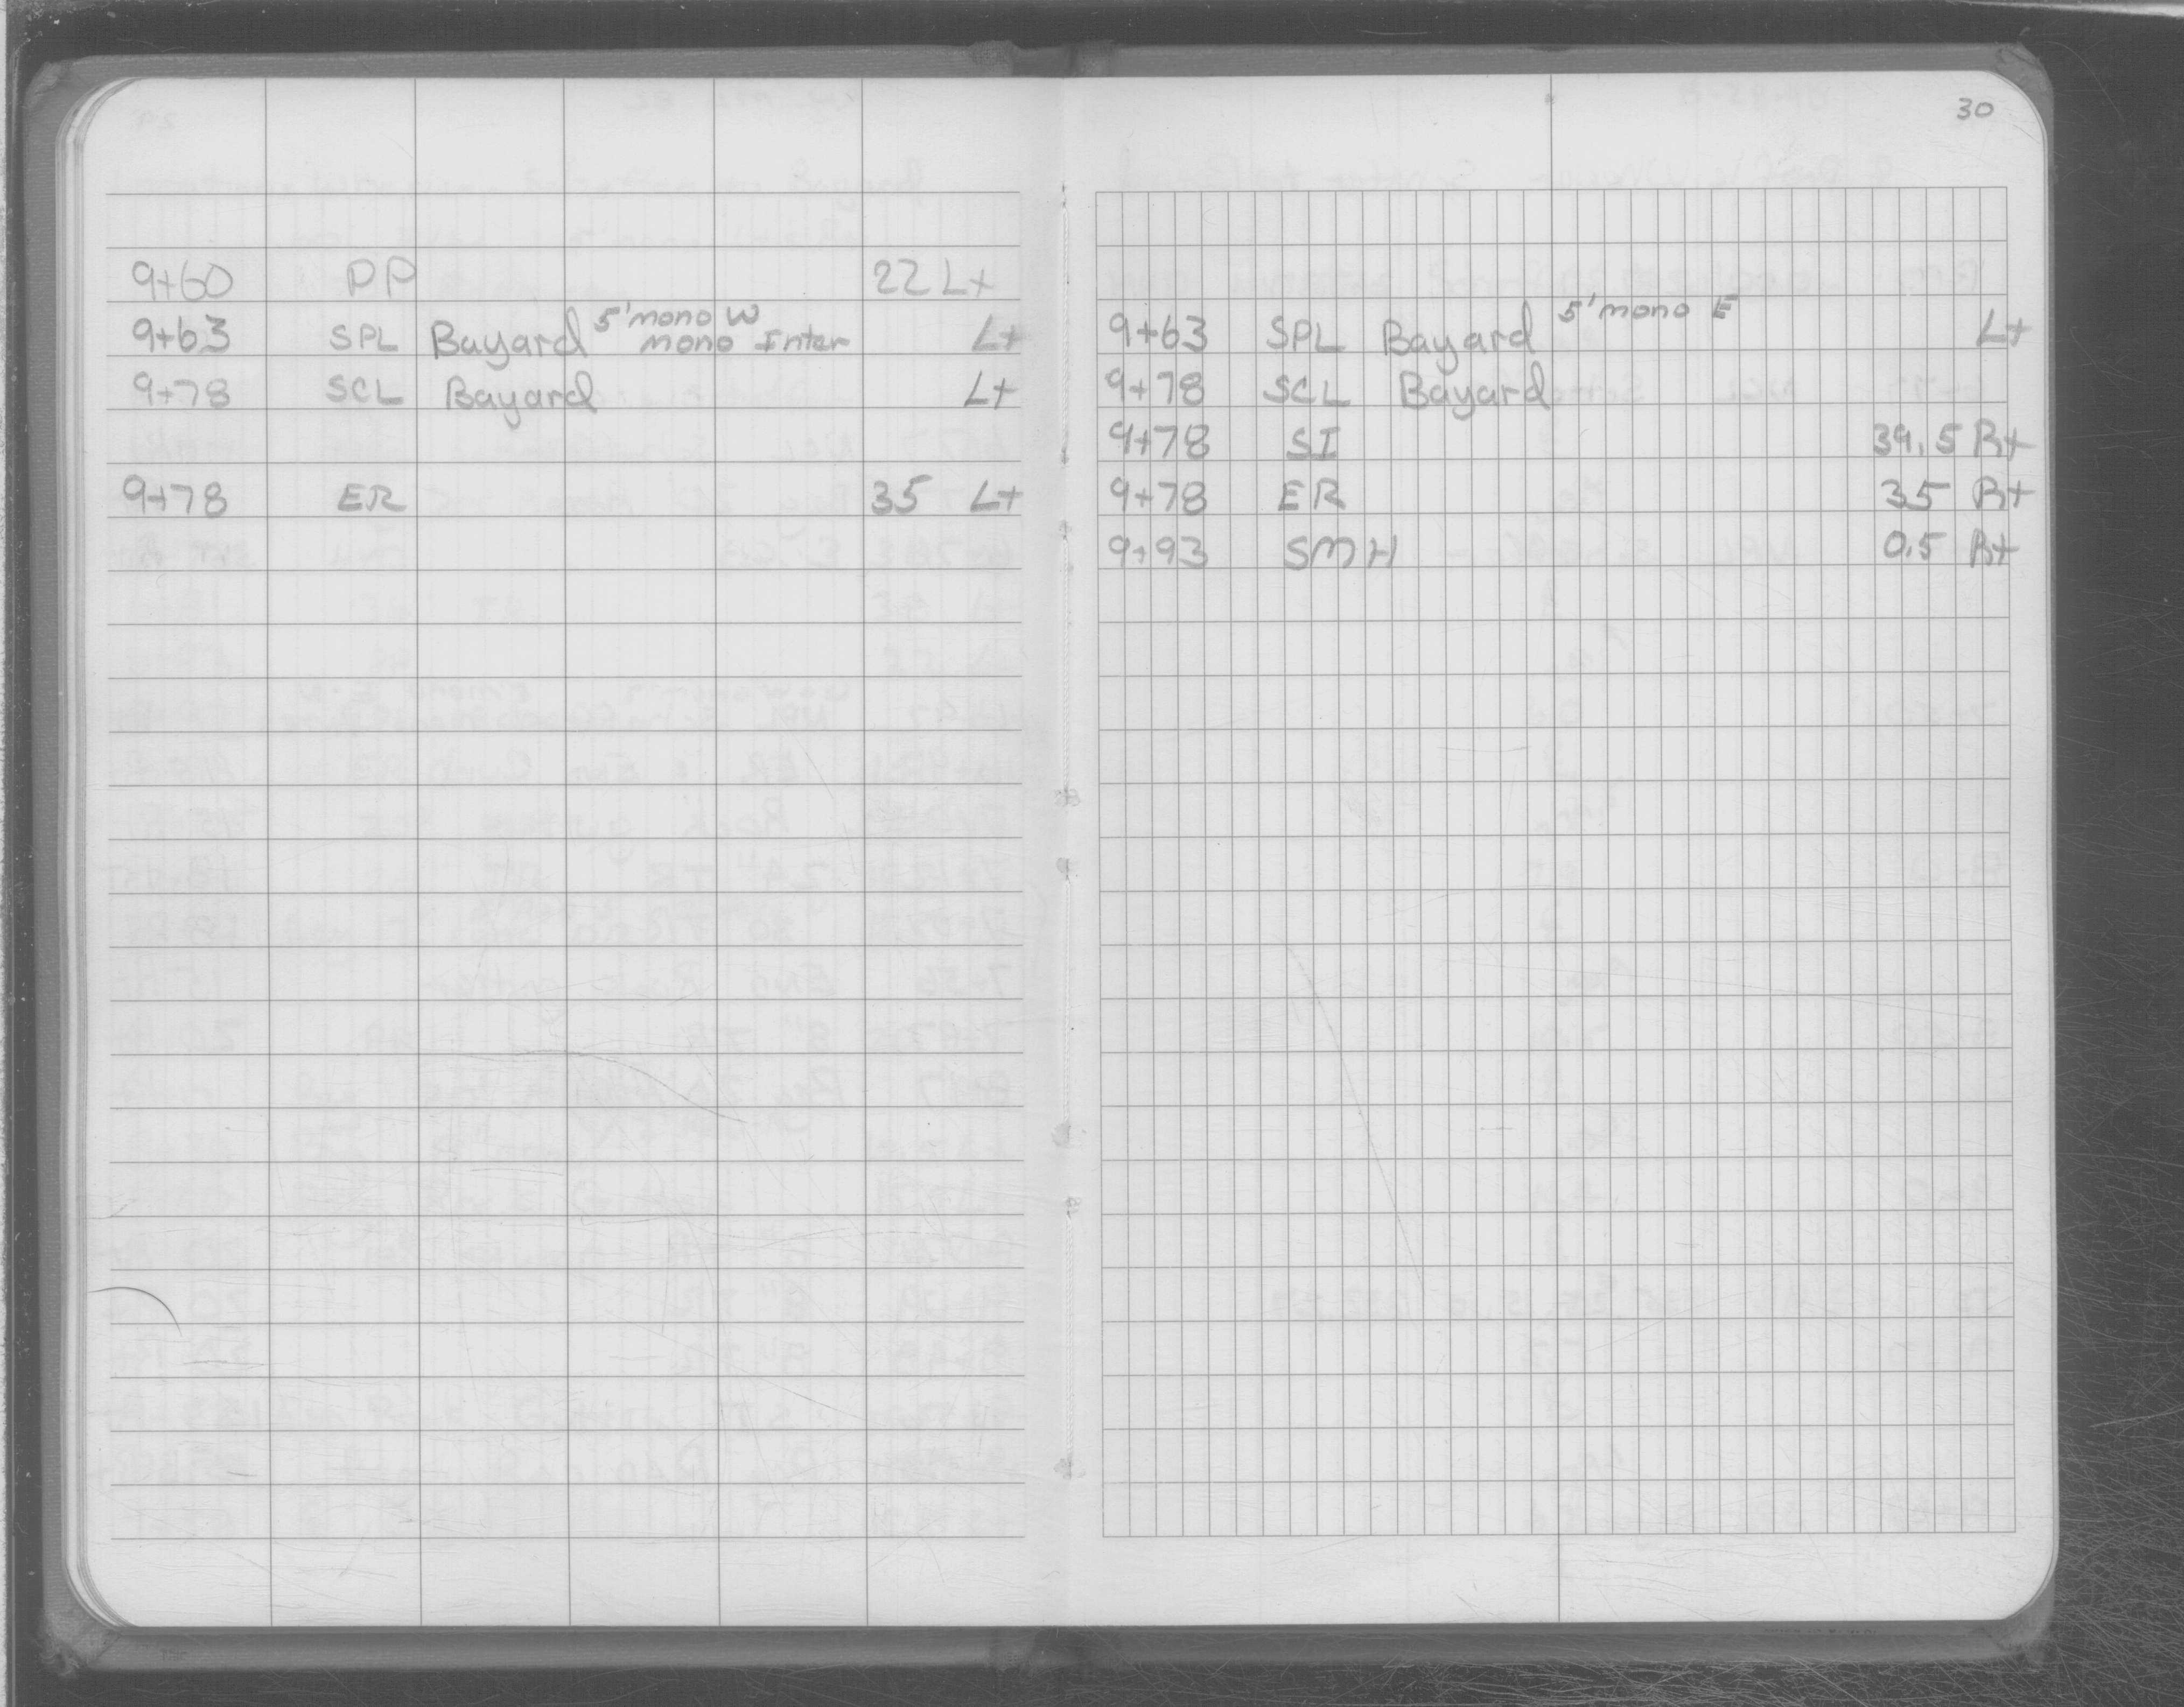 9+60 PP 22 Lt
5' mono W
9+63 SPL Bayard mono Inter Lt
9+78 SCL Bayard Lt
9+78 ER 35 Lt
30
5' mono E
9+63 SPL Bayard Lt
9+78 SCL Bayard Lt
9+78 SI 39.5 Rt
9+78 ER 35 Rt
9+93 SMH 0.5 Rt